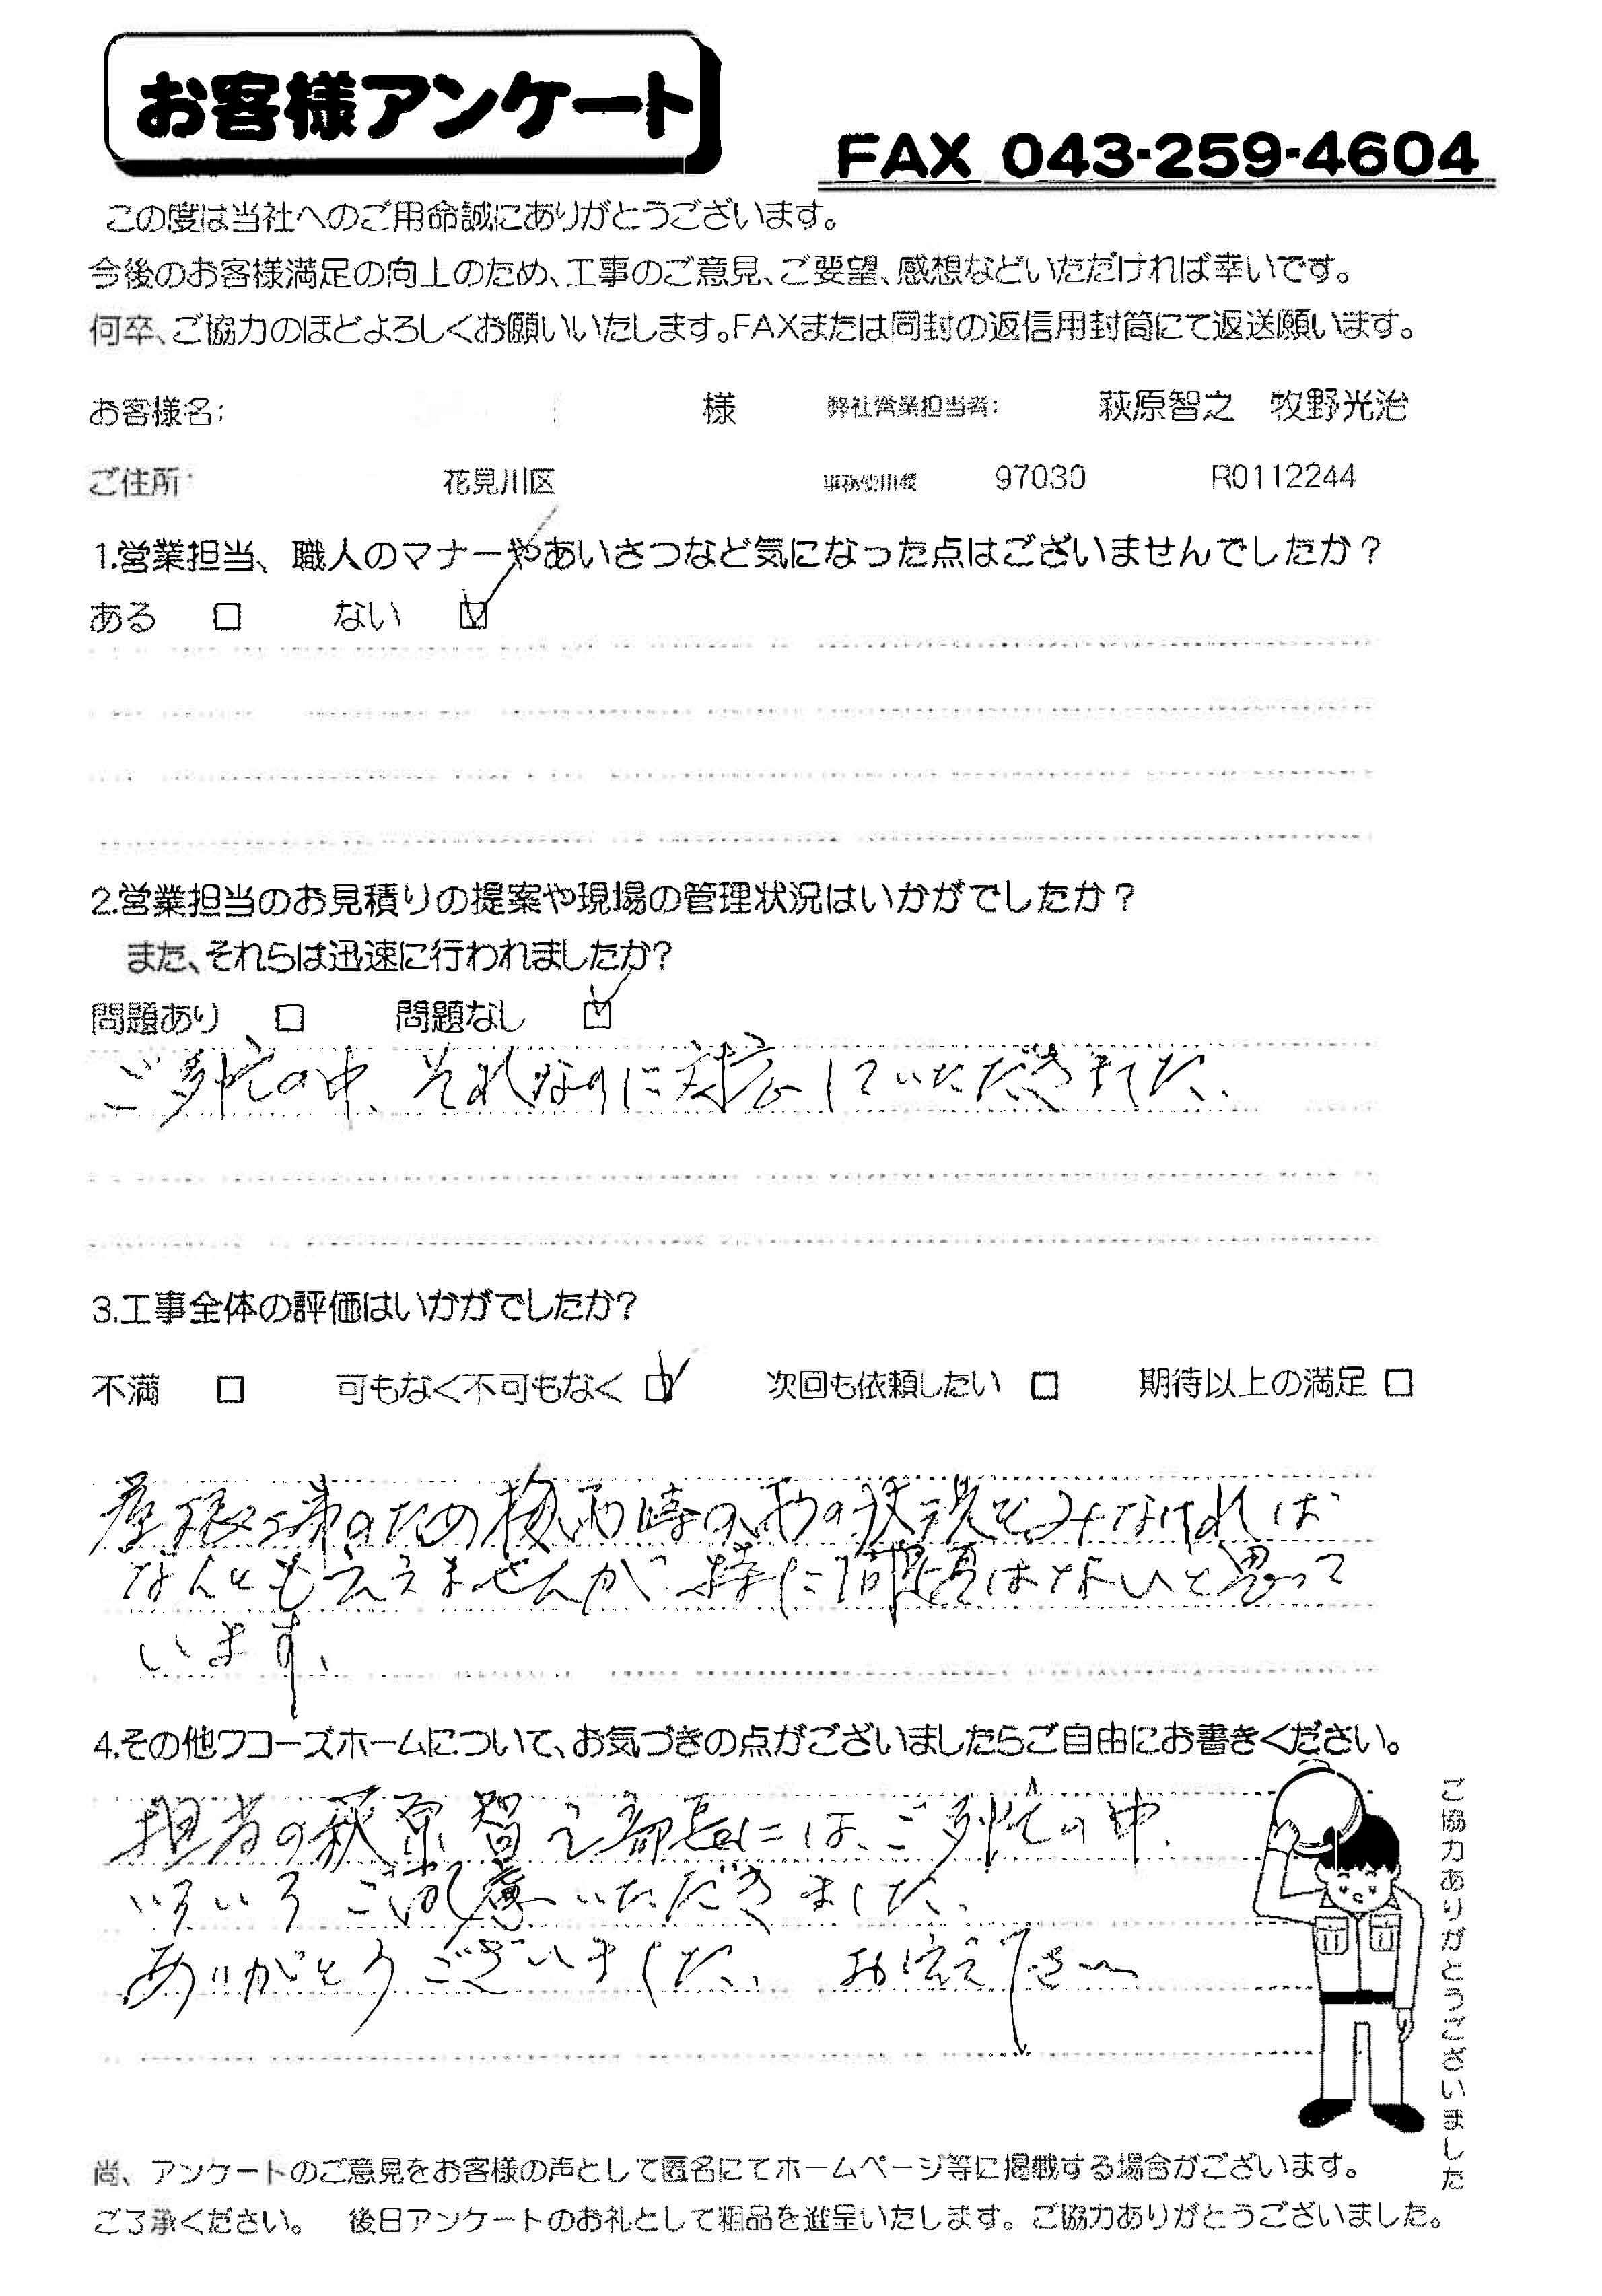 お客様アンケート
FAX 043-259-4604
この度は当社へのご用命誠にありがとうございます。
今後のお客様満足の向上のため、工事のご意見、ご要望、感想などいただければ幸いです。
何卒、ご協力のほどよろしくお願いいたします。FAXまたは同封の返信用封筒にて返送願います。
お客様名: 様 弊社営業担当者: 萩原智之 牧野光治
ご住所: 花見川区 事務使用欄 97030 R0112244
1.営業担当、職人のマナーやあいさつなど気になった点はございませんでしたか？
ある □ ない ☑
2.営業担当のお見積りの提案や現場の管理状況はいかがでしたか？
また、それらは迅速に行われましたか?
問題あり □ 問題なし ☑
ご多忙の中、それなりに対応していただきました、
3.工事全体の評価はいかがでしたか?
不満 □ 可もなく不可もなく ☑ 次回も依頼したい □ 期待以上の満足 □
屋根工事のための梅雨時の雨の状況をみなければ
なんとも云えませんが 特に問題はないと思って
います、
4.その他ワコーズホームについて、お気づきの点がございましたらご自由にお書きください。
担当の萩原智之部長には、ご多忙の中、
いろいろご配慮いただきました、
ありがとうございました、 お伝え下さい
ご協力ありがとうございました
尚、アンケートのご意見をお客様の声として匿名にてホームページ等に掲載する場合がございます。
ご了承ください。 後日アンケートのお礼として粗品を進呈いたします。ご協力ありがとうございました。